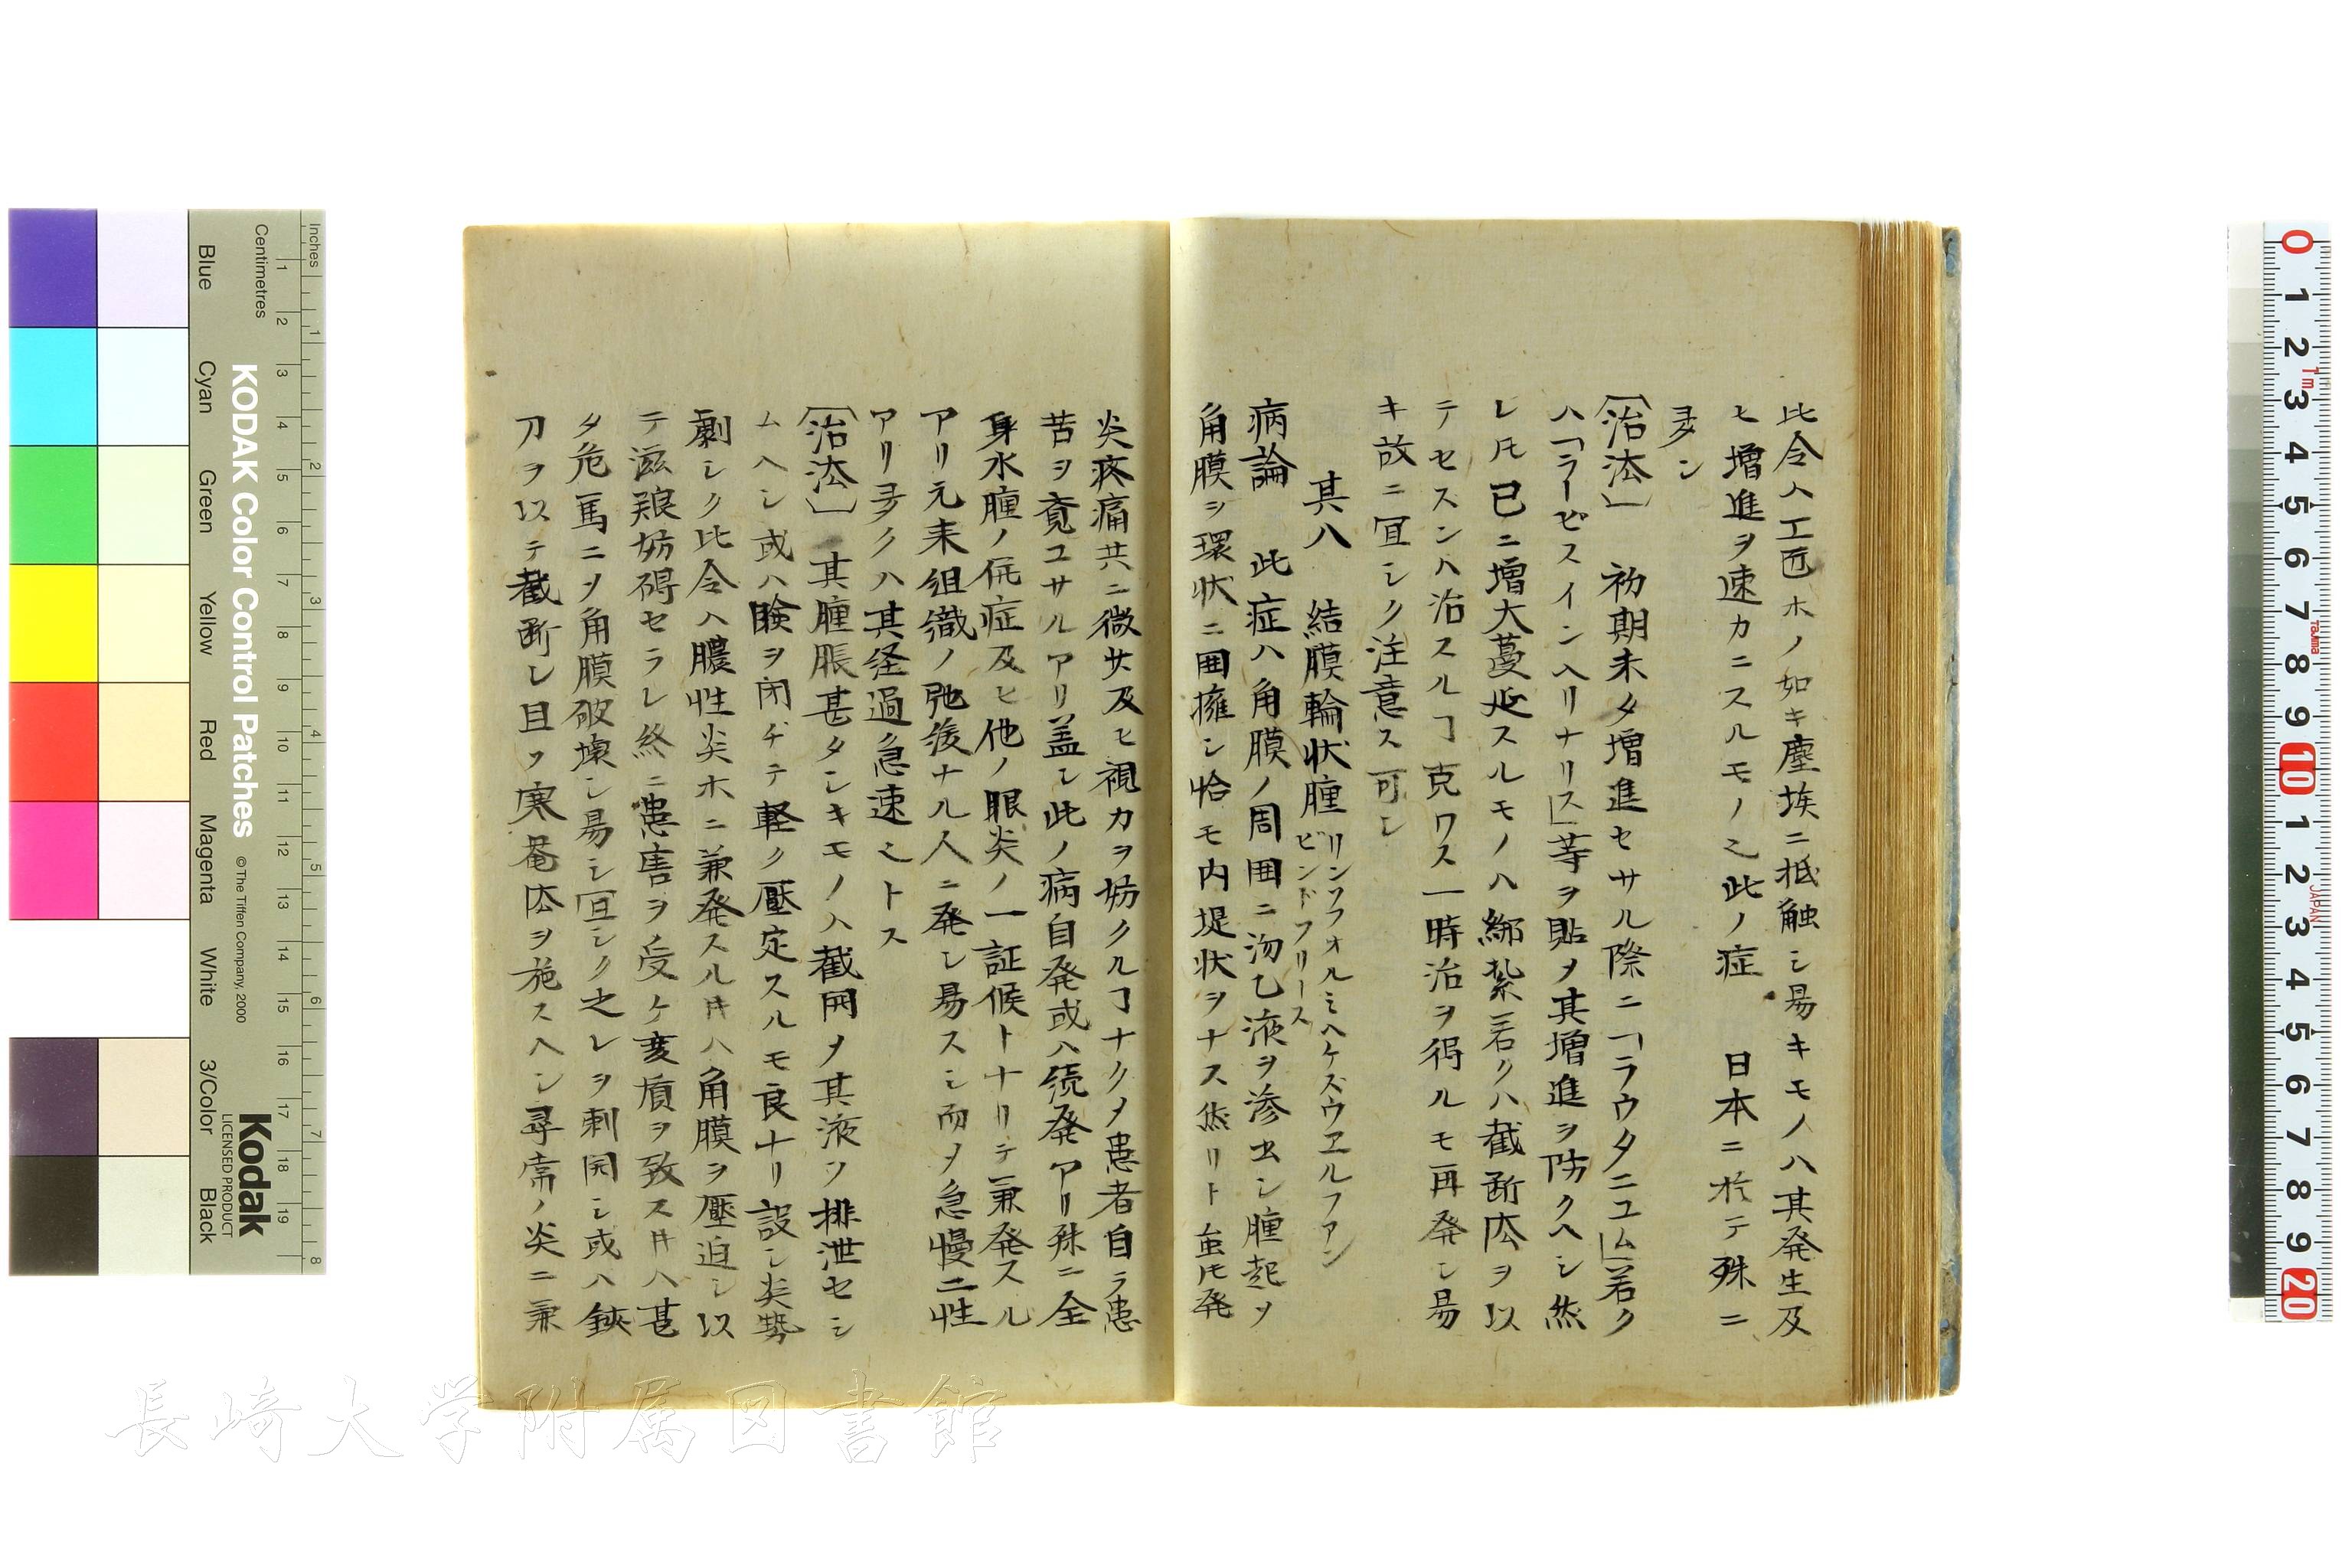 比令ハ工匠ホノ如キ塵埃ニ抵触シ易キモノハ其発生及
ヒ増進ヲ速カニスルモノ之此ノ症 日本ニ於テ殊ニ
多シ
〔治法〕 初期未タ増進セサル際ニ「ラウタニユム」若ク
ハ「ラービスインヘリナリス」等ヲ貼〆其増進ヲ防クヘシ然
レ𪜈已ニ増大蔓延スルモノハ綁紮若クハ截断法ヲ以
テセスンハ治スルヿ克ワス一時治ヲ得ルモ再発シ易
キ故ニ宜シク注意ス可シ
其八 結膜輪状腫 リンワフォルミヘケズウヱルファン
ビンドフリース
病論 此症ハ角膜ノ周囲ニ沕乙液ヲ渗出シ腫起ヲ
角膜ヲ環状ニ囲擁シ恰モ内堤状ヲナス然リト虽𪜈発
炎疼痛共ニ微サ及ヒ視力ヲ妨クルヿナク〆患者自ラ患
苦ヲ覚ユサルアリ盖シ此ノ病自発或ハ続発アリ殊ニ全
身水腫ノ併症及ヒ他ノ眼炎ノ一証候トナリテ兼発スル
アリ元来組織ノ弛緩ナル人ニ発シ易スシ而〆急慢二性
アリ多クハ其経過急速之トス
〔治法〕 其腫脹甚タシキモノハ截開〆其液ヲ排泄セシ
ムヘシ或ハ瞼ヲ閉チテ軽ク壓定スルモ良ナリ設シ炎勢
劇シク比令ハ膿性炎ホニ兼発スル𪜀ハ角膜ヲ壓迫シ以
テ滋羪妨碍セラレ終ニ患害ヲ受ケ変質ヲ致ス𪜀ハ甚
タ危篤ニヲ角膜破壊シ易シ宜シク之レヲ刺開シ或ハ鋏
刀ヲ以テ截断シ且ツ寒罨法ヲ施スヘシ尋常ノ炎ニ兼
KODAK Color Control Patches
© The Tiffen Company, 2000
Kodak
LICENSED PRODUCT
Inches
Centimetres
Blue
Cyan
Green
Yellow
Red
Magenta
White
3/Color
Black
1 2 3 4 5 6 7 8 9 10 11 12 13 14 15 16 17 18 19
1 2 3 4 5 6 7 8
0 1 2 3 4 5 6 7 8 9 10 1 2 3 4 5 6 7 8 9 20
1m
TAJIMA
JAPAN
長崎大学附属図書館